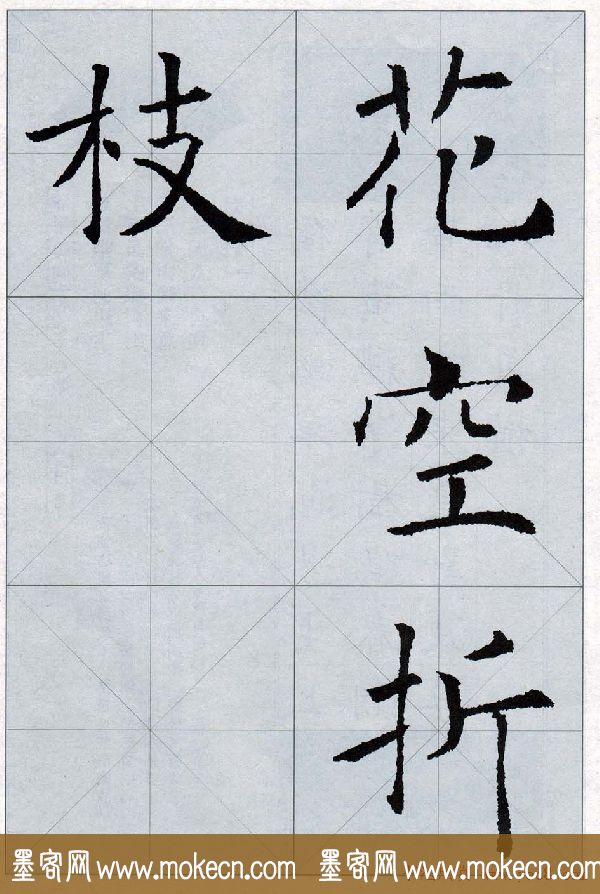 花空折
枝
墨客网 www.mokecn.com 墨客网 www.mokecn.com